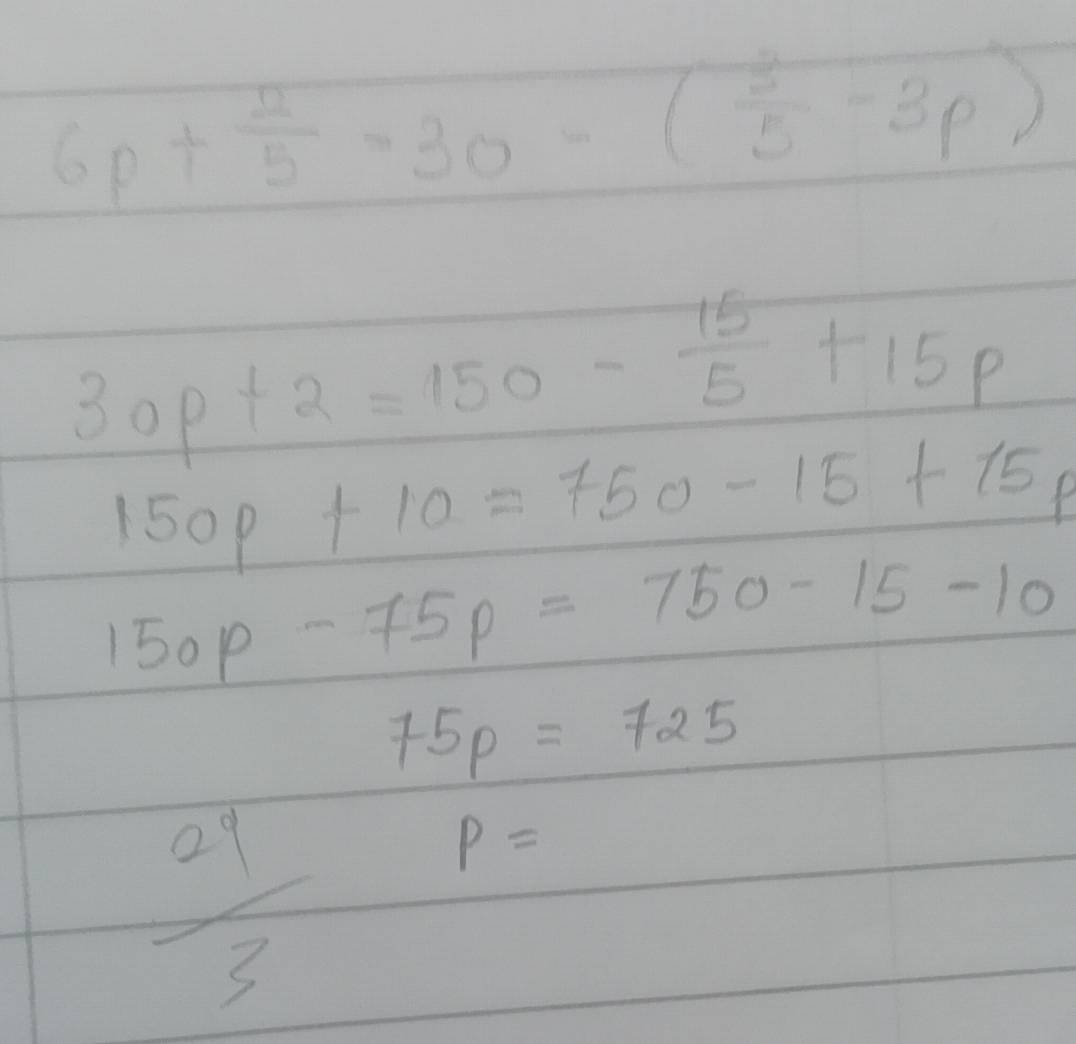 6p + 2/5 = 30 - ( 3/5 - 3p )
30p + 2 = 150 - 15/5 + 15p
150p + 10 = 750 - 15 + 75p
150p - 75p = 750 - 15 - 10
75p = 725
29/3 p =